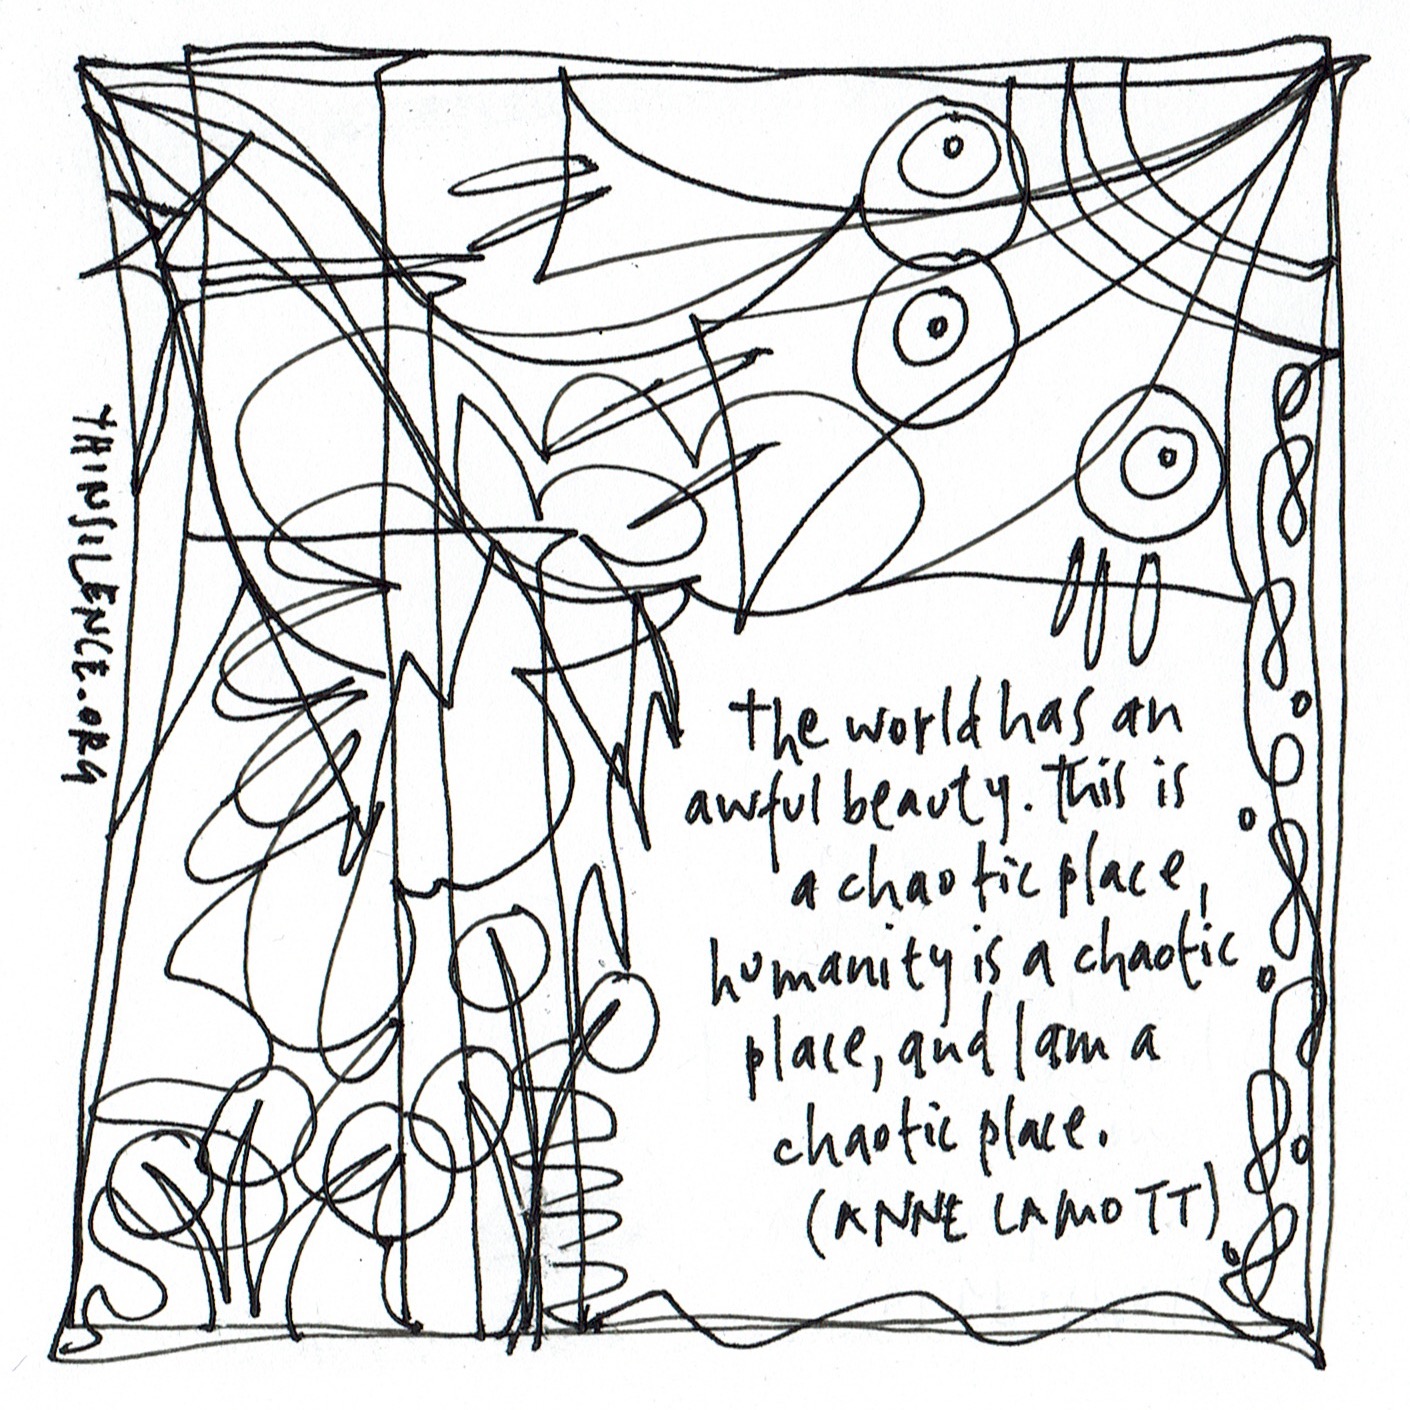 THINSILENCE.ORG
the world has an
awful beauty. This is
a chaotic place,
humanity is a chaotic
place, and I am a
chaotic place.
(ANNE LAMOTT)